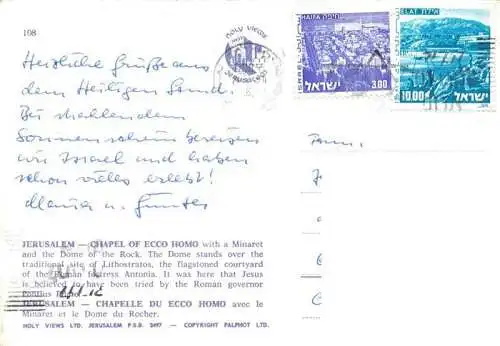 108
HOLY VIEWS
JERUSALEM
HAIFA חיפה
ISRAEL
3.00
ישראל
ELAT אילת
10.00
ישראל
Herzliche Grüße aus
dem Heiligen Land.
Bei strahlendem
Sonnenschein bereisen
wir Israel und haben
schon vieles erlebt!
u. Günter
Fam.
JERUSALEM — CHAPEL OF ECCO HOMO with a Minaret
and the Dome of the Rock. The Dome stands over the
traditional site of Lithostratos, the flagstoned courtyard
of the Roman fortress Antonia. It was here that Jesus
is believed to have been tried by the Roman governor
Pontius Pilate.
JERUSALEM — CHAPELLE DU ECCO HOMO avec le
Minaret et le Dome du Rocher.
HOLY VIEWS LTD. JERUSALEM P.O.B. — COPYRIGHT PALPHOT LTD.